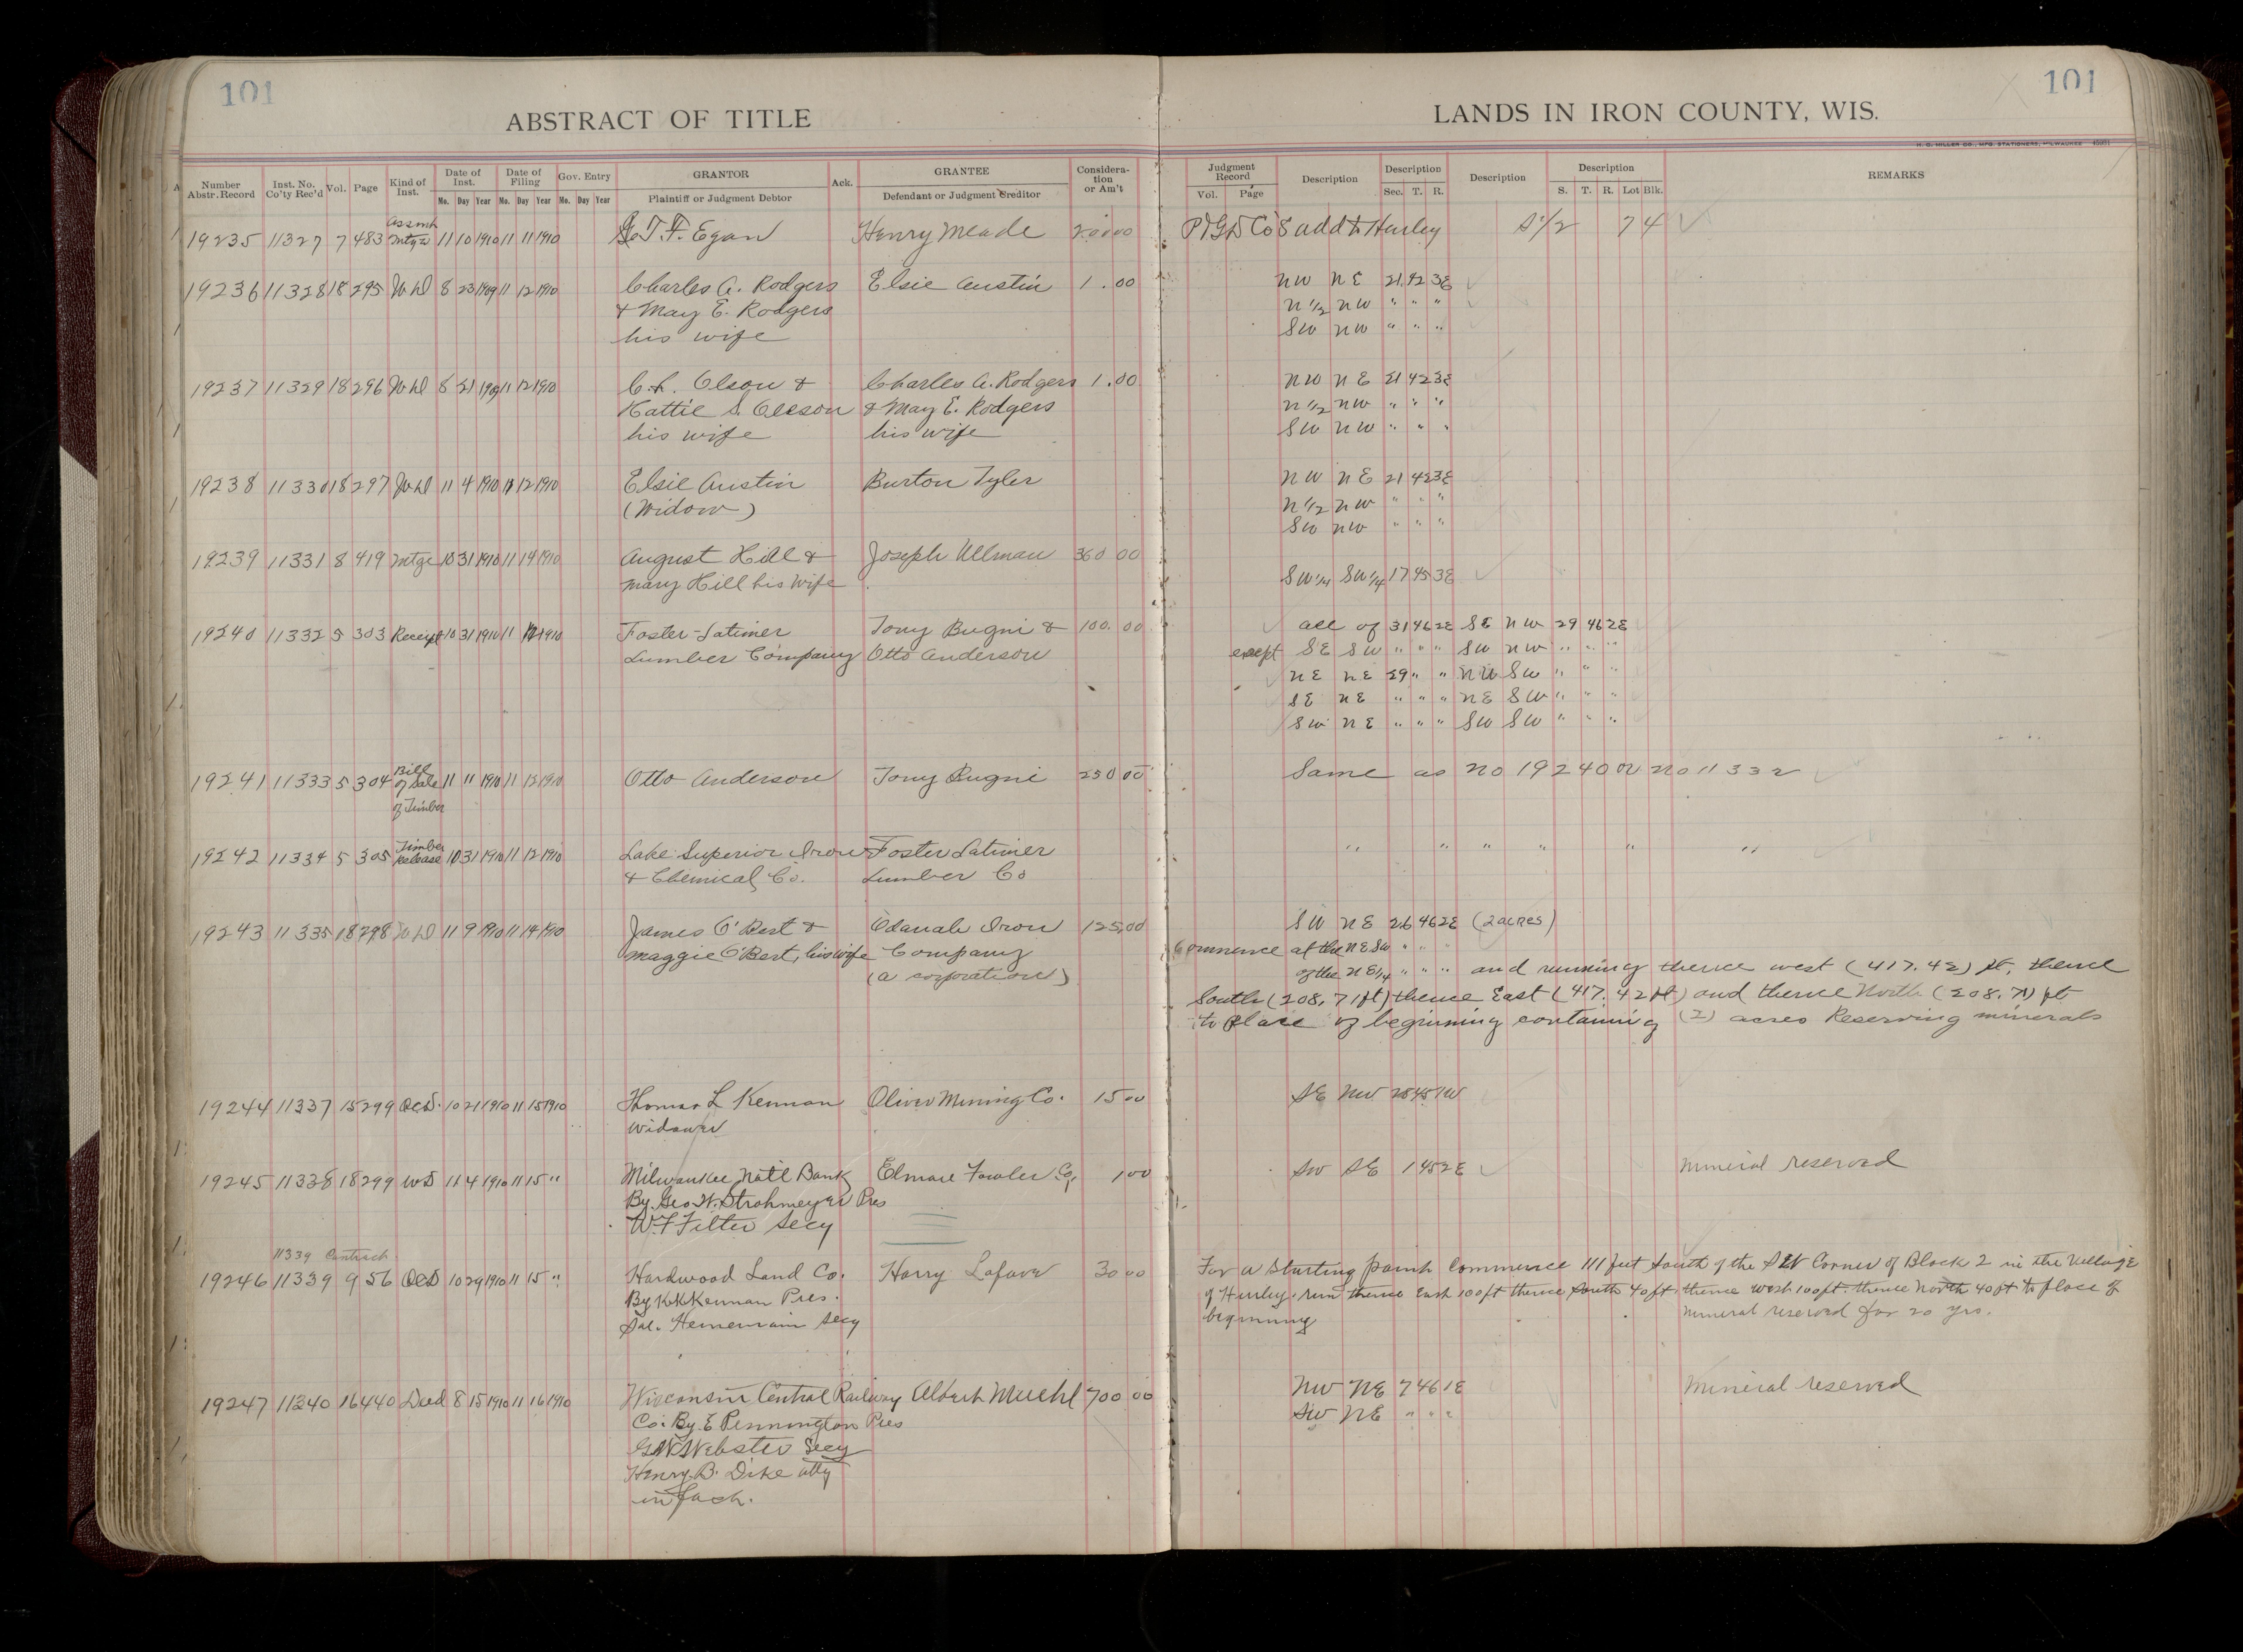 101
101
ABSTRACT OF TITLE
LANDS IN IRON COUNTY, WIS.
H. G. MILLER CO., MFG. STATIONERS, MILWAUKEE
Number Abstr. Record
Inst. No. Co'ty Rec'd
Vol.
Page
Kind of Inst.
Date of Inst. Mo. Day Year
Date of Filing Mo. Day Year
Gov. Entry Mo. Day Year
GRANTOR Plaintiff or Judgment Debtor
Ack.
GRANTEE Defendant or Judgment Creditor
Considera-tion or Am't
Judgment Record Vol. Page
Description
Description Sec. T. R.
Description
Description S. T. R. Lot Blk.
REMARKS
19235 11327 7 483 Assmt Mtge 11 10 1910 11 11 1910 T. F. Egan Henry Meade Co's add to Hurley S 1/2 7 4
19236 11328 18 295 WD 8 23 1909 11 12 1910 Charles A. Rodgers Elsie Austin 1.00 NW NE 21 42 3E
& May E. Rodgers N 1/2 NW " " "
his wife SW NW " " "
19237 11329 18 296 WD 8 21 1909 11 12 1910 C. L. Olson & Charles A. Rodgers 1.00 NW NE 21 42 3E
Hattie S. Oleson & May E. Rodgers N 1/2 NW " " "
his wife his wife SW NW " " "
19238 11330 18 297 WD 11 4 1910 11 12 1910 Elsie Austin Burton Tyler NW NE 21 42 3E
(Widow) N 1/2 NW " " "
SW NW " " "
19239 11331 8 419 Mtge 10 31 1910 11 14 1910 August Hill & Joseph Ullman 360 00
Mary Hill his wife SW 1/4 SW 1/4 17 45 3E
19240 11332 5 303 Receipt 10 31 1910 11 12 1910 Foster-Latimer Tony Bugni & 100.00 all of 31 46 2E SE NW 29 46 2E
Lumber Company Otto Anderson except SE SW " " " SW NW " " "
NE NE 29 " " NW SW " " "
SE NE " " " NE SW " " "
SW NE " " " SW SW " " "
19241 11333 5 304 Bill of Sale of Timber 11 11 1910 11 12 1910 Otto Anderson Tony Bugni 250 00 Same as No 19240 or No 11332
19242 11334 5 305 Timber Release 10 31 1910 11 12 1910 Lake Superior Iron Foster Latimer " " " " " "
& Chemical Co. Lumber Co
19243 11335 18 298 WD 11 9 1910 11 14 1910 James O'Bert & Odanah Iron 125.00 SW NE 26 46 2E (2 acres)
Maggie O'Bert, his wife Company Commence at the NE SW " " "
(a corporation) of the NE 1/4 " " " and running thence west (417.42) ft, thence
South (208.71 ft) thence East (417.42 ft) and thence North (208.71) ft
to place of beginning containing (2) acres Reserving minerals
19244 11337 15 299 QCD. 10 21 1910 11 15 1910 Thomas L Kennan Oliver Mining Co. 15 00 SE NW 28 45 1W
Widower
19245 11338 18 299 WD 11 4 1910 11 15 " Milwaukee Nat'l Bank Elmore Fowler Co, 1 00 SW SE 1 45 2E Mineral reserved
By Geo. W. Strohmeyer Pres
W. F. Filter Secy
11339 Contract
19246 11339 9 56 QCD 10 29 1910 11 15 " Hardwood Land Co. Harry Lafave 30 00 For a Starting point Commence 111 feet South of the SW Corner of Block 2 in the Village
By K. K. Kennan Pres. of Hurley, run thence East 100 ft thence South 40 ft, thence West 100 ft. thence North 40 ft to place of
Sal. Secy beginning Mineral reserved for 20 yrs.
19247 11240 16 440 Deed 8 15 1910 11 16 1910 Wisconsin Central Railway Albert Muehl 700 00 NW NE 7 46 1E Mineral reserved
Co. By E Pennington Pres SW NE " " "
G. W. Webster Secy
Henry B. Dike atty
in fact.